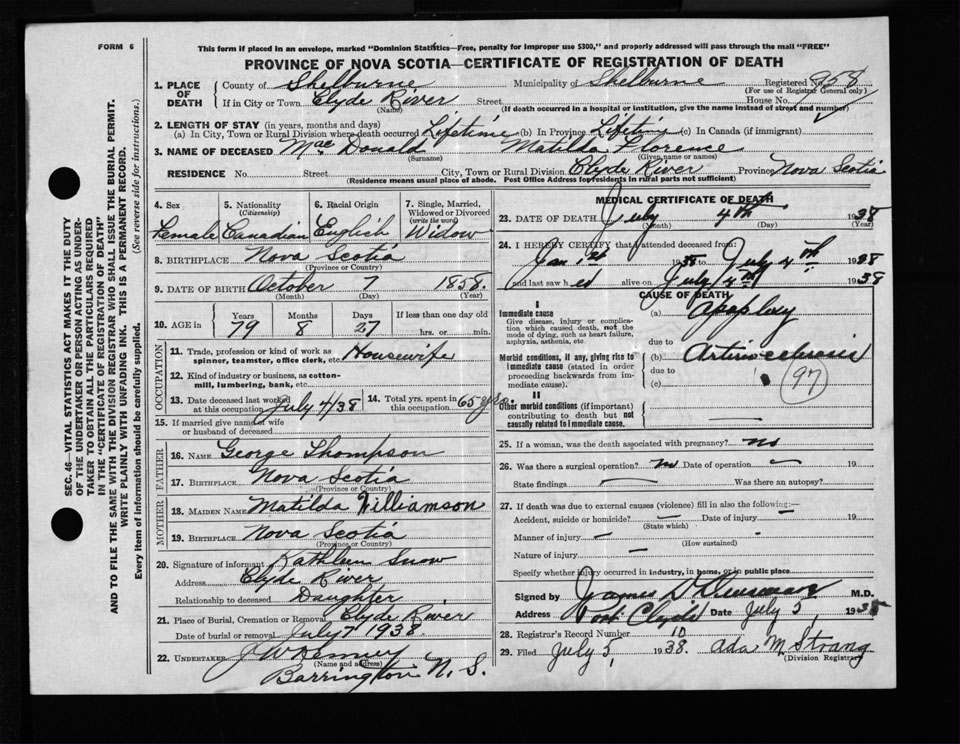 FORM 6
This form if placed in an envelope, marked "Dominion Statistics—Free, penalty for improper use $300," and properly addressed will pass through the mail "FREE"
PROVINCE OF NOVA SCOTIA—CERTIFICATE OF REGISTRATION OF DEATH
SEC. 46—VITAL STATISTICS ACT MAKES IT THE DUTY
OF THE UNDERTAKER OR PERSON ACTING AS UNDER-
TAKER TO OBTAIN ALL THE PARTICULARS REQUIRED
IN THE "CERTIFICATE OF REGISTRATION OF DEATH"
AND TO FILE THE SAME WITH THE DIVISION REGISTRAR WHO SHALL ISSUE THE BURIAL PERMIT.
WRITE PLAINLY WITH UNFADING INK. THIS IS A PERMANENT RECORD.
Every item of information should be carefully supplied. (See reverse side for instructions.)
1. PLACE OF DEATH County of Shelburne Municipality of Shelburne Registered No. 958
(For use of Registrar General only)
If in City or Town Clyde River Street House No.
(Name) (If death occurred in a hospital or institution, give the name instead of street and number)
2. LENGTH OF STAY (in years, months and days)
(a) In City, Town or Rural Division where death occurred Lifetime (b) In Province Lifetime (c) In Canada (if immigrant)
3. NAME OF DECEASED MacDonald Matilda Florence
(Surname) (Given name or names)
RESIDENCE No. Street City, Town or Rural Division Clyde River Province Nova Scotia
(Residence means usual place of abode. Post Office Address for residents in rural parts not sufficient)
4. Sex 5. Nationality (Citizenship) 6. Racial Origin 7. Single, Married, Widowed or Divorced (write the word)
Female Canadian English Widow
8. BIRTHPLACE Nova Scotia
(Province or Country)
9. DATE OF BIRTH October 7 1858
(Month) (Day) (Year)
10. AGE in Years Months Days If less than one day old
79 8 27 hrs. or min.
OCCUPATION
11. Trade, profession or kind of work as spinner, teamster, office clerk, etc. Housewife
12. Kind of industry or business, as cotton-mill, lumbering, bank, etc.
13. Date deceased last worked at this occupation July 4/38 14. Total yrs. spent in this occupation 65 yrs.
15. If married give name of wife or husband of deceased
FATHER
16. NAME George Thompson
17. BIRTHPLACE Nova Scotia
(Province or Country)
MOTHER
18. MAIDEN NAME Matilda Williamson
19. BIRTHPLACE Nova Scotia
(Province or Country)
20. Signature of informant Kathleen Snow
Address Clyde River
Relationship to deceased Daughter
21. Place of Burial, Cremation or Removal Clyde River
Date of burial or removal July 7 1938
22. UNDERTAKER
(Name and address)
Barrington N.S.
MEDICAL CERTIFICATE OF DEATH
23. DATE OF DEATH July 4th 1938
(Month) (Day) (Year)
24. I HEREBY CERTIFY that I attended deceased from:
Jan 1st 1938 to July 4th 1938
and last saw h er alive on July 1938
CAUSE OF DEATH
I
Immediate cause
Give disease, injury or complication which caused death, not the mode of dying, such as heart failure, asphyxia, asthenia, etc.
(a) Apoplexy
due to
Morbid conditions, if any, giving rise to immediate cause (stated in order proceeding backwards from immediate cause).
(b)
due to
(c)
97
II
Other morbid conditions (if important) contributing to death but not causally related to immediate cause.
25. If a woman, was the death associated with pregnancy? no
26. Was there a surgical operation? no Date of operation — 19
State findings — Was there an autopsy?
27. If death was due to external causes (violence) fill in also the following:—
Accident, suicide or homicide? — Date of injury — 19
(State which)
Manner of injury —
(How sustained)
Nature of injury —
Specify whether injury occurred in industry, in home, or in public place.
Signed by James M.D.
Address Port Clyde Date July 5 1938
28. Registrar's Record Number 10
29. Filed July 5, 1938. Ada M Strang
(Division Registrar)